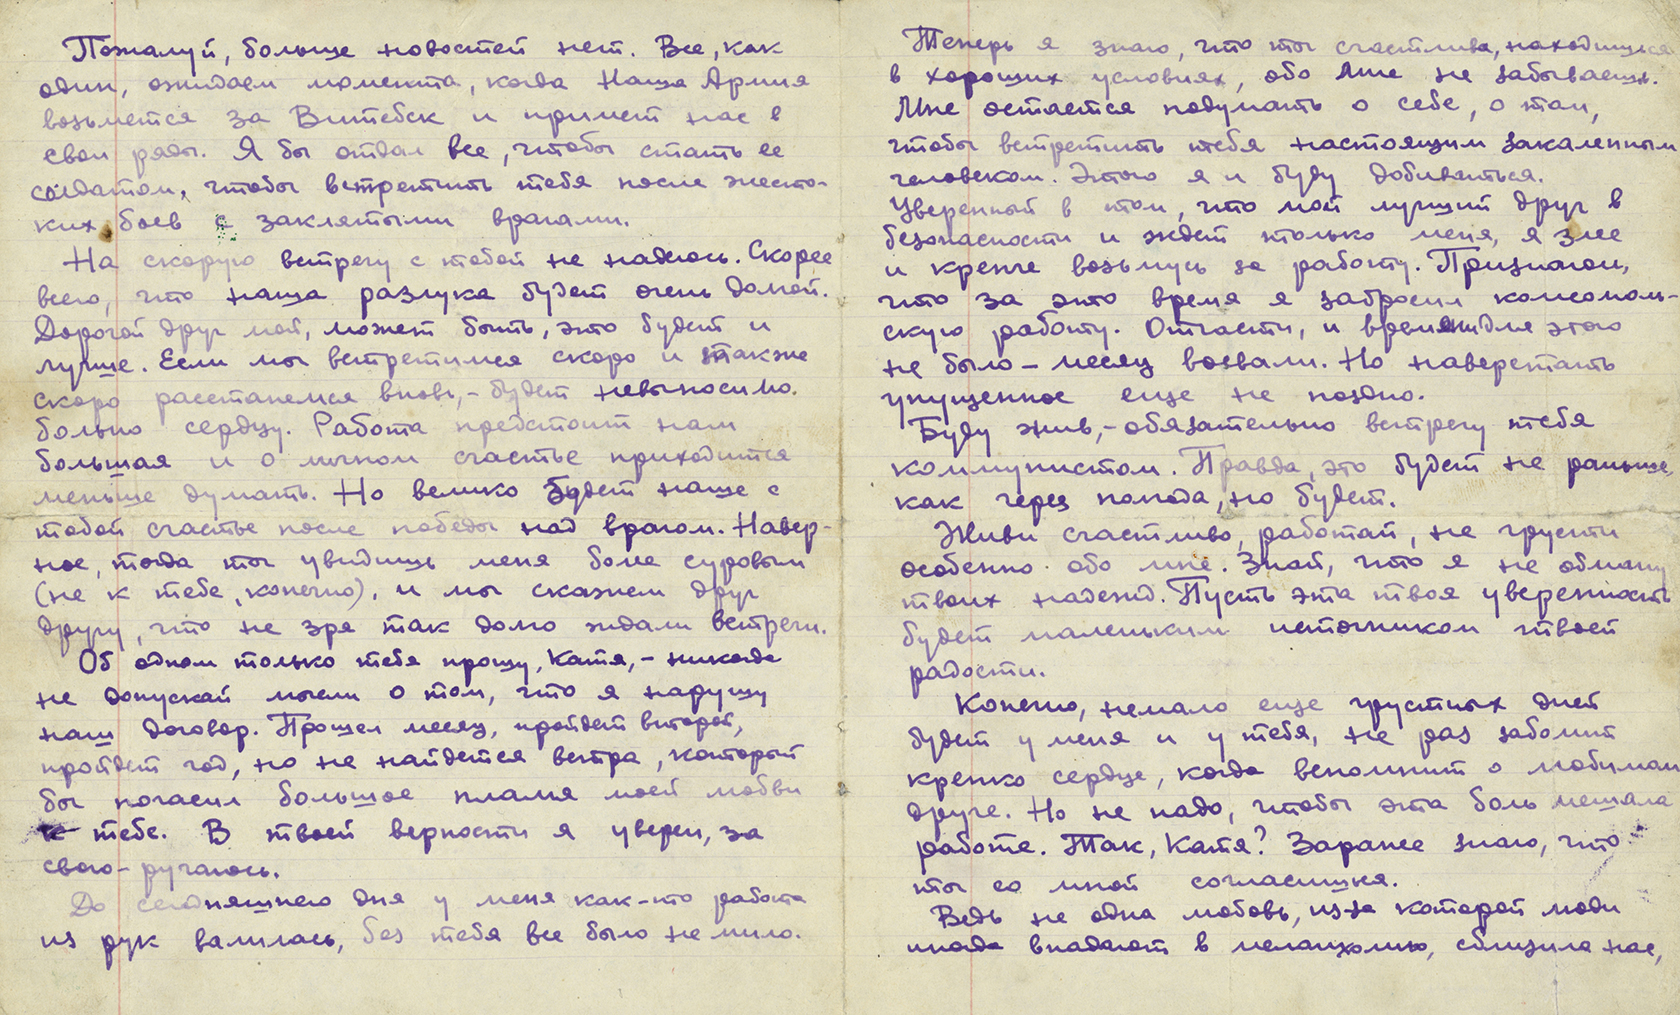 Пожалуй, больше новостей нет. Все, как
один, ожидаем момента, когда Наша Армия
возьмется за Витебск и примет нас в
свои ряды. Я бы отдал все, чтобы стать ее
солдатом, чтобы встретить тебя после жесто-
ких боев с заклятыми врагами.
На скорую встречу с тобой не надеюсь. Скорее
всего, что наша разлука будет очень долгой.
Дорогой друг мой, может быть, это будет и
лучше. Если мы встретимся скоро и также
скоро расстанемся вновь, - будет невыносимо
больно сердцу. Работа предстоит нам
большая и о личном счастье приходится
меньше думать. Но велико будет наше с
тобой счастье после победы над врагом. Навер-
ное, тогда ты увидишь меня более суровым
(не к тебе, конечно), и мы скажем друг
другу, что не зря так долго ждали встречи.
Об одном только тебя прошу, Катя, - никогда
не допускай мысли о том, что я нарушу
наш договор. Прошел месяц, пройдет второй,
пройдет год, но не найдется ветра, который
бы погасил большое пламя моей любви
к тебе. В твоей верности я уверен, за
свою - ручаюсь.
До сегодняшнего дня у меня как-то работа
из рук валилась, без тебя все было не мило.
Теперь я знаю, что ты счастлива, находишься
в хороших условиях, обо Мне не забываешь.
Мне остается подумать о себе, о том,
чтобы встретить тебя настоящим закаленным
человеком. Этого я и буду добиваться.
Уверенный в том, что мой лучший друг в
безопасности и ждет только меня, я злее
и крепче возьмусь за работу. Признаюсь,
что за это время я забросил комсомоль-
скую работу. Отчасти, и времени для этого
не было - месяц воевали. Но наверстать
упущенное еще не поздно.
Буду жив, - обязательно встречу тебя
коммунистом. Правда, это будет не раньше,
как через полгода, но будет.
Живи счастливо, работай, не грусти
особенно обо мне. Знай, что я не обману
твоих надежд. Пусть эта твоя уверенность
будет маленьким источником твоей
радости.
Конечно, немало еще грустных дней
будет у меня и у тебя, не раз заболит
крепко сердце, когда вспомнит о любимом
друге. Но не надо, чтобы эта боль мешала
работе. Так, Катя? Заранее знаю, что
ты со мной согласишься.
Ведь не одна любовь, из-за которой люди
иногда впадают в меланхолию, сблизила нас,